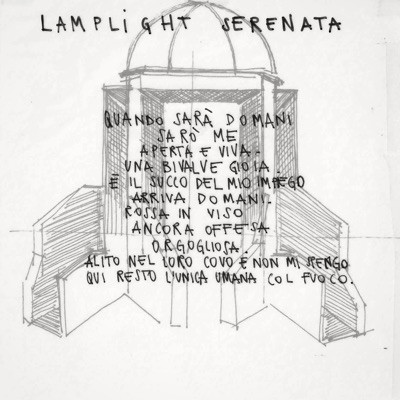 LAMPLIGHT SERENATA
QUANDO SARÀ DOMANI
SARÒ ME
APERTA E VIVA.
UNA BIVALVE GIOIA.
È IL SUCCO DEL MIO IMPEGO
ARRIVA DOMANI.
ROSSA IN VISO
ANCORA OFFESA
ORGOGLIOSA
ALITO NEL LORO COVO E NON MI SPENGO
QUI RESTO L'UNICA UMANA COL FUOCO.